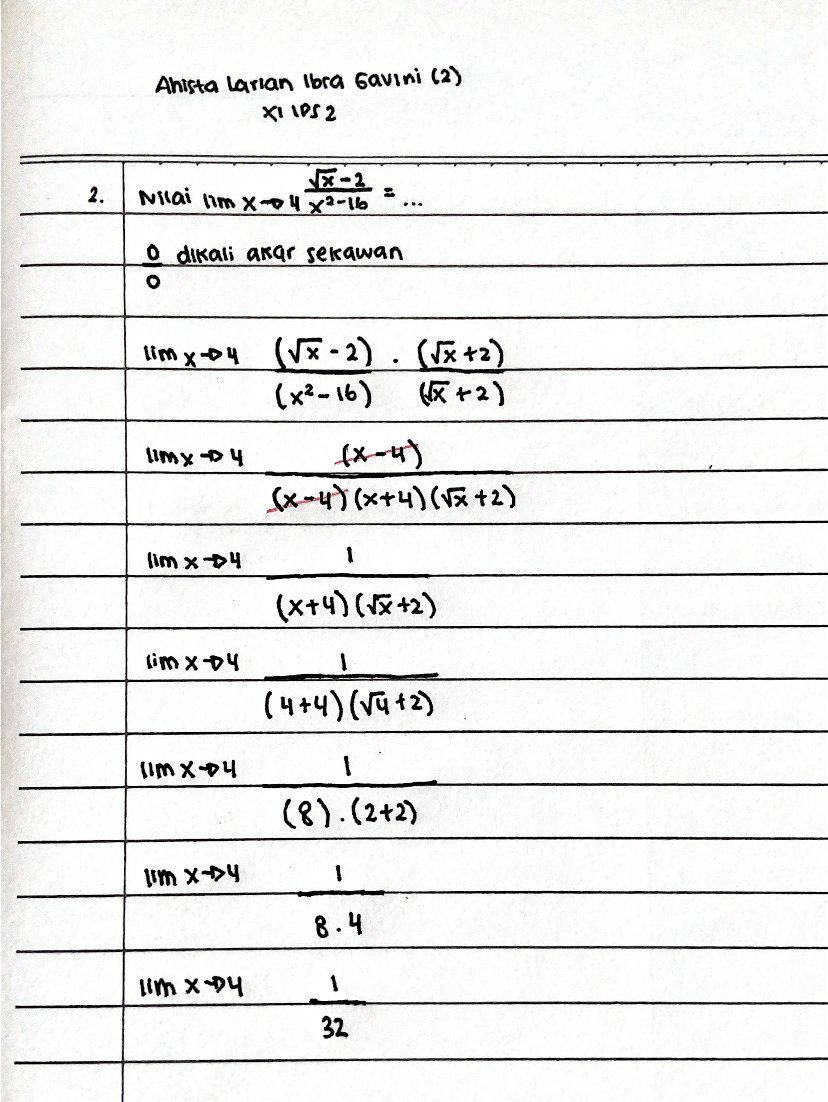 Ahista Larian Ibra Gavini (2)
XI IPS 2
2. Nilai lim x→4 √x-2 / x²-16 = ...
0/0 dikali akar sekawan
lim x→4 (√x - 2) / (x² - 16) . (√x + 2) / (√x + 2)
lim x→4 (x-4) / (x-4)(x+4)(√x+2)
lim x→4 1 / (x+4)(√x+2)
lim x→4 1 / (4+4)(√4+2)
lim x→4 1 / (8).(2+2)
lim x→4 1 / 8.4
lim x→4 1 / 32